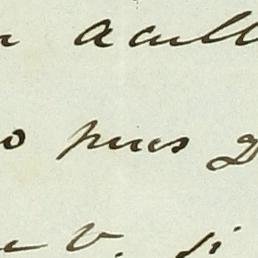 acull
o pues
e V. si